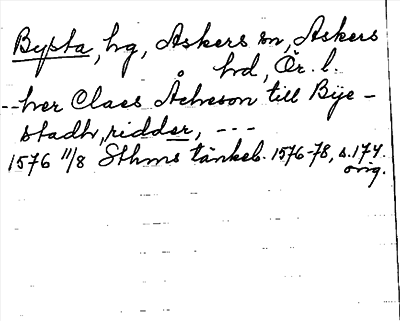 Bysta, hg, Askers sn, Askers
hd, Ör. l.
--her Claes Åcheson till Bije-
stadh, ridder, ---
1576 11/8 Sthms tänkeb. 1576-78, s. 174.
orig.